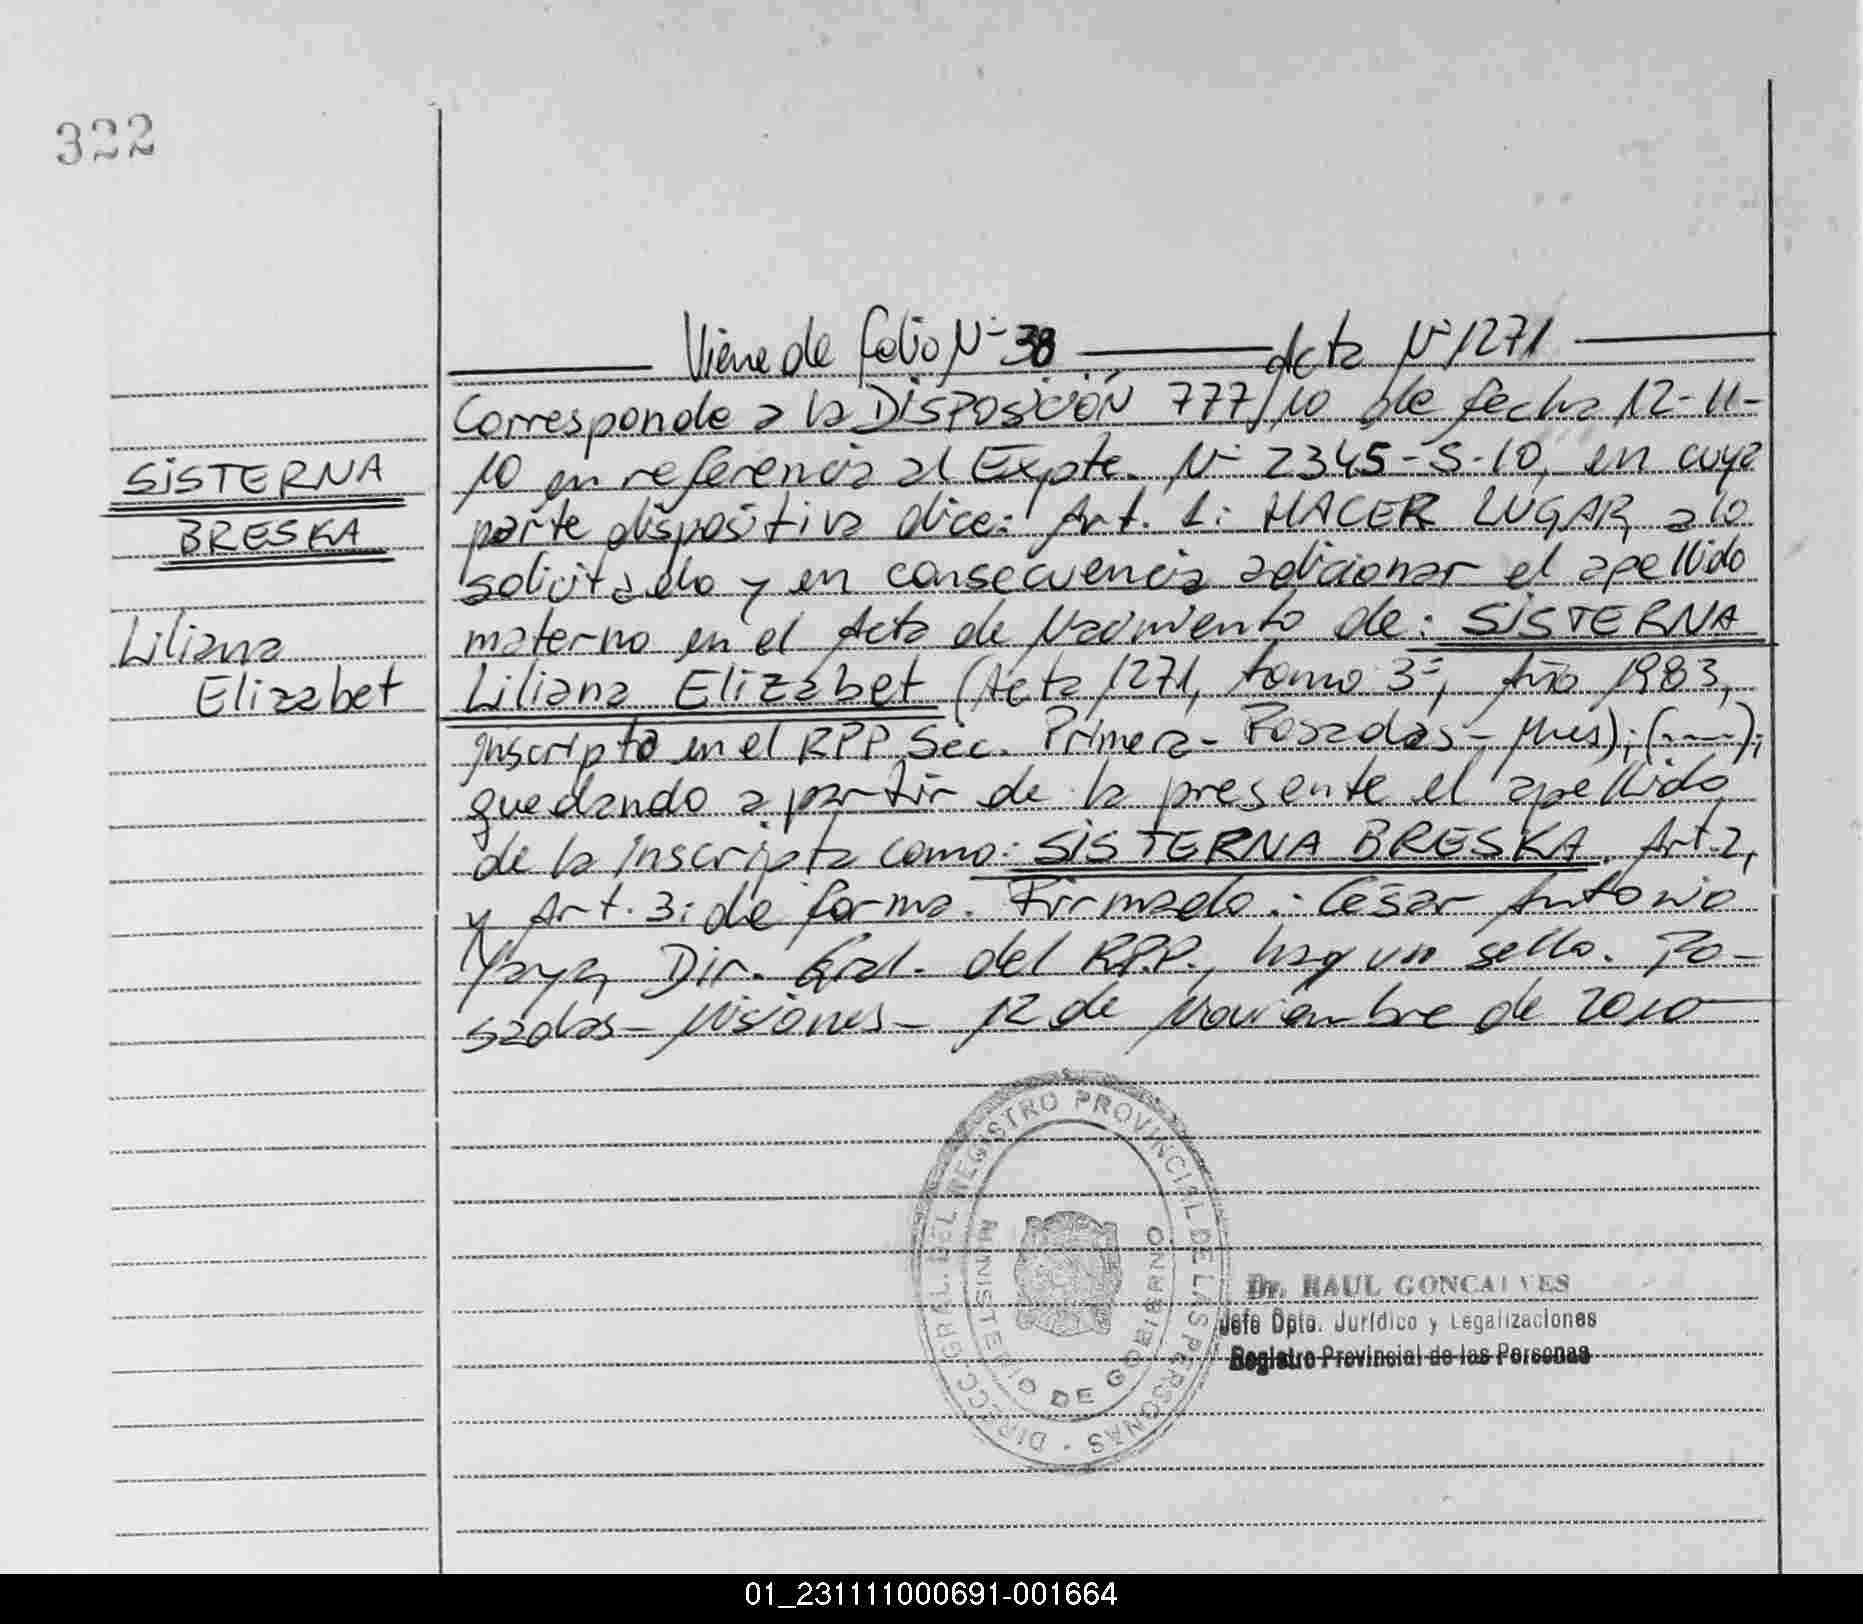 322
Viene de folio Nº 38 Acta Nº 1271
Corresponde a la DISPOSICIÓN 777/10 de fecha 12-11-
10 en referencia al Expte. Nº 2345-S-10, en cuya
parte dispositiva dice: Art. 1: HACER LUGAR a lo
solicitado y en consecuencia adicionar el apellido
materno en el Acta de Nacimiento de: SISTERNA
Liliana Elizabet (Acta 1271, tomo 3º, Año 1983,
inscripto en el RPP Sec. Primera- Posadas- Mnes);(----);
quedando a partir de la presente el apellido
de la inscripta como: SISTERNA BRESKA. Art. 2,
y Art. 3: de forma. Firmado: César Antonio
Yaya, Dir. Gral. del R.P.P., hay un sello. Po-
sadas- Misiones- 12 de Noviembre de 2010
SISTERNA
BRESKA
Liliana
Elizabet
DIRECC. GRAL. DEL REGISTRO PROVINCIAL DE LAS PERSONAS
MINISTERIO DE GOBIERNO
Dr. RAUL GONCALVES
Jefe Dpto. Jurídico y Legalizaciones
Registro Provincial de las Personas
01_231111000691-001664